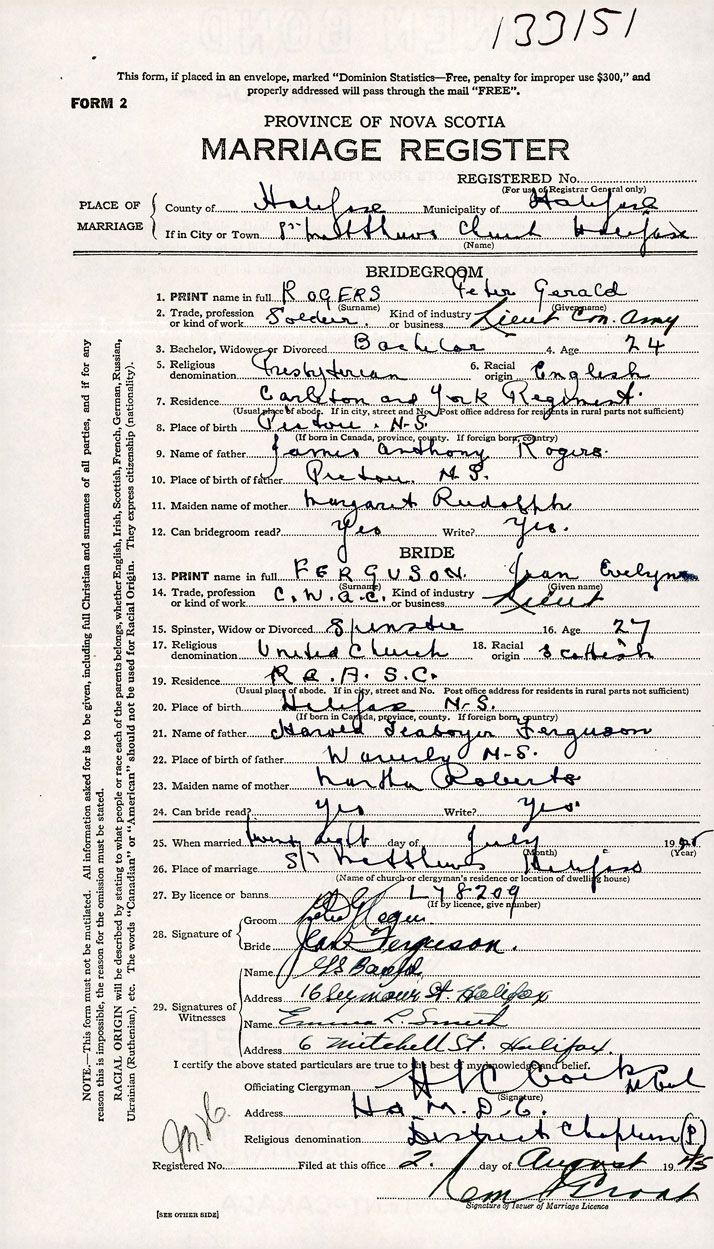 133151
This form, if placed in an envelope, marked "Dominion Statistics—Free, penalty for improper use $300," and
properly addressed will pass through the mail "FREE".
FORM 2
PROVINCE OF NOVA SCOTIA
MARRIAGE REGISTER
REGISTERED No.
(For use of Registrar General only)
PLACE OF MARRIAGE
County of Halifax Municipality of Halifax
If in City or Town St Matthews Church Halifax
(Name)
BRIDEGROOM
1. PRINT name in full ROGERS Peter Gerald
(Surname) (Given name)
2. Trade, profession or kind of work Soldier. Kind of industry or business Lieut Can. Army
3. Bachelor, Widower or Divorced Bachelor 4. Age 24
5. Religious denomination Presbyterian 6. Racial origin English
7. Residence Carleton and York Regiment.
(Usual place of abode. If in city, street and No. Post office address for residents in rural parts not sufficient)
8. Place of birth Pictou. N.S.
(If born in Canada, province, county. If foreign born, country)
9. Name of father James Anthony Rogers.
10. Place of birth of father Pictou. N.S.
11. Maiden name of mother Margaret Rudolph
12. Can bridegroom read? Yes Write? Yes.
BRIDE
13. PRINT name in full FERGUSON. Jean Evelyn
(Surname) (Given name)
14. Trade, profession or kind of work C.W.A.C. Kind of industry or business Lieut
15. Spinster, Widow or Divorced Spinster 16. Age 27
17. Religious denomination United Church 18. Racial origin Scottish
19. Residence R.C.A.S.C.
(Usual place of abode. If in city, street and No. Post office address for residents in rural parts not sufficient)
20. Place of birth Halifax N.S.
(If born in Canada, province, county. If foreign born, country)
21. Name of father Harold Ferguson
22. Place of birth of father Waverly N.S.
23. Maiden name of mother Martha Roberts
24. Can bride read? Yes Write? Yes.
25. When married twenty eight day of July 1945
(Month) (Year)
26. Place of marriage St Matthews Halifax
(Name of church or clergyman's residence or location of dwelling house)
27. By licence or banns L 78209
(If by licence, give number)
28. Signature of
Groom Rogers
Bride Jean Ferguson.
29. Signatures of Witnesses
Name
Address 16 Seymour St. Halifax
Name Emma L. Smith
Address 6 Mitchell St. Halifax.
I certify the above stated particulars are true to the best of my knowledge and belief.
Officiating Clergyman
(Signature)
Address M.D.6.
Religious denomination District Chaplain (P)
Registered No. Filed at this office 2. day of August 1945
Signature of Issuer of Marriage Licence
[SEE OTHER SIDE]
NOTE.—This form must not be mutilated. All information asked for is to be given, including full Christian and surnames of all parties, and if for any
reason this is impossible, the reason for the omission must be stated.
RACIAL ORIGIN will be described by stating to what people or race each of the parents belongs, whether English, Irish, Scottish, French, German, Russian,
Ukrainian (Ruthenian), etc. The words "Canadian" or "American" should not be used for Racial Origin. They express citizenship (nationality).